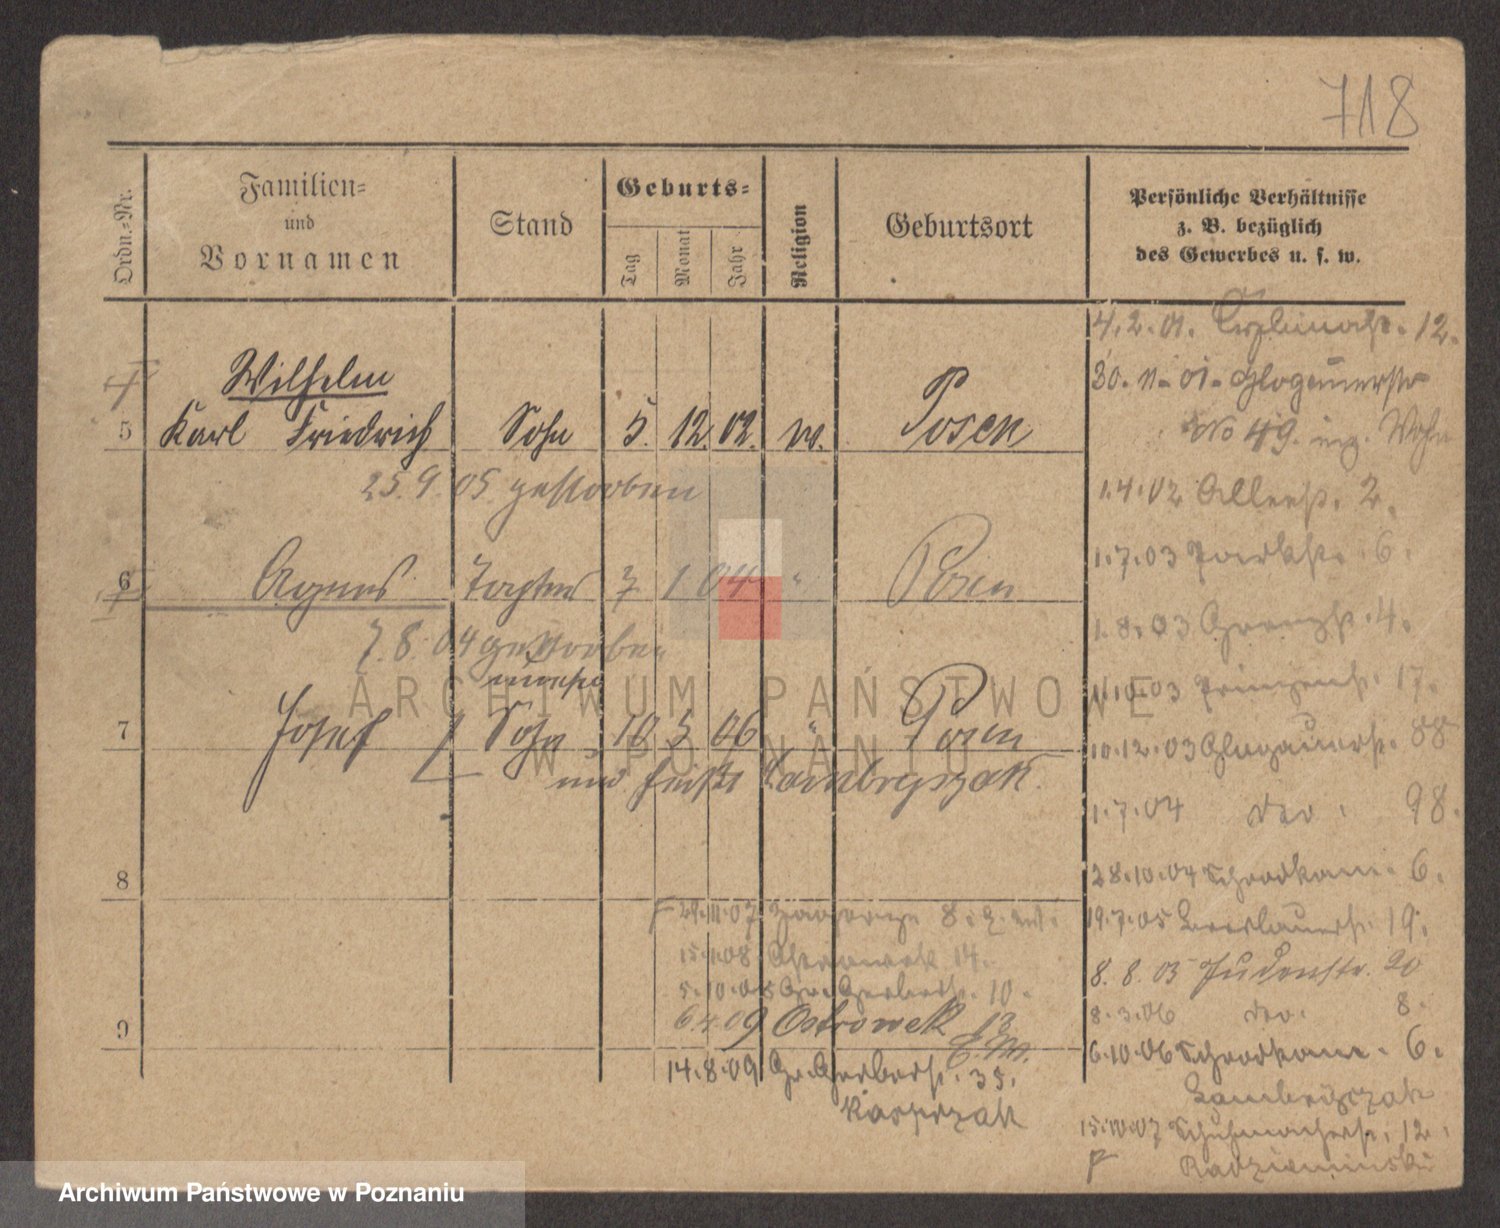 718
Ordn.-Nr.
Familien-
und
Vornamen
Stand
Geburts-
Tag
Monat
Jahr
Religion
Geburtsort
Persönliche Verhältnisse
z. B. bezüglich
des Gewerbes u. s. w.
Wilhelm
5 Karl Friedrich Sohn 5. 12. 02. w. Posen
25.9.05 gestorben
6 Agnes Tochter 7 1 04 " Posen
7.8.04 gestorben
7 Josef Sohn 10 5 06 " Posen
und heißt Lambryszak.
8
29.11.07 8.
15.1.08 14.
5.10.08 Gr. Gerberstr. 10.
9
6 4 09 Ostrowek 13
14.8.09 Gr. Gerberstr. 35.
Kasprzak
4.2.01. 12.
30.11.01. Glogauerstr
No 49. Wohn
1.4.02 Alleestr. 2.
1.7.03 Parkstr. 6.
1.8.03 Grenzstr. 4.
1.10.03 Prinzenstr. 17.
10.12.03 Glogauerstr. 88
1.7.04 dto. 98.
28.10.04 Schrodkam. 6.
19.7.05 Breslauerstr. 19.
8.8.05 Judenstr. 20
8.3.06 dto. 8.
6.10.06 Schrodkam. 6.
Lambryszak
15.10.07 Schuhmacherstr. 12.
Radziminski
ARCHIWUM PAŃSTWOWE
W POZNANIU
Archiwum Państwowe w Poznaniu